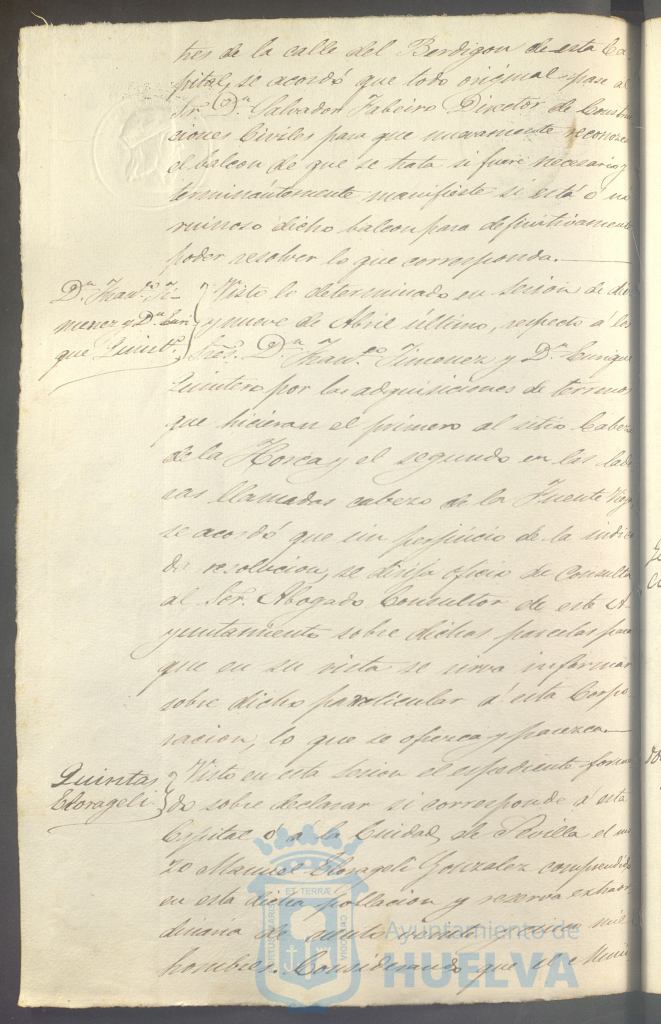 tres de la calle del Berdigon de esta Ca-
pital, se acordó que todo original pase al
Sor. Dn. Salvador Fabeiro Director de Constru
ciones Civiles para que nuevamente reconozca
el balcon de que se trata si fuere necesario y
terminantemente manifieste si está ó no
ruinoso dicho balcon para definitivamente
poder resolver lo que corresponda.
Dn. Franco. Ji-
menez y Dn. Enri
que Quinto.
Visto lo determinado en sesion de diez
y nueve de Abril último, respecto á los
Sres. Dn. Franco. Jimenez y Dn. Enrique
Quintero por las adquisiciones de terrenos
que hicieran el primero al sitio Cabezo
de la Horca y el segundo en las lade
ras llamadas cabezo de la Fuente Vieja
se acordó que sin perjuicio de la indica
da resolucion, se dirija oficio de consulta
al Sor. Abogado Consultor de este A-
yuntamiento sobre dichas parcelas para
que en su vista se sirva informar
sobre dicho particular á esta Corpo-
racion, lo que se ofrezca y parezca.
Quintas
Elorageli
Visto en esta sesion el espediente forma
do sobre declarar si corresponde á esta
Capital ó á la Ciudad de Sevilla el mo
zo Manuel Elorageli Gonzalez comprendido
en esta dicha poblacion y reserva extraor
dinaria de ciento veinte cinco mil
hombres. Considerando que el
ET TERRÆ
CUSTODIA
Ayuntamiento de
HUELVA